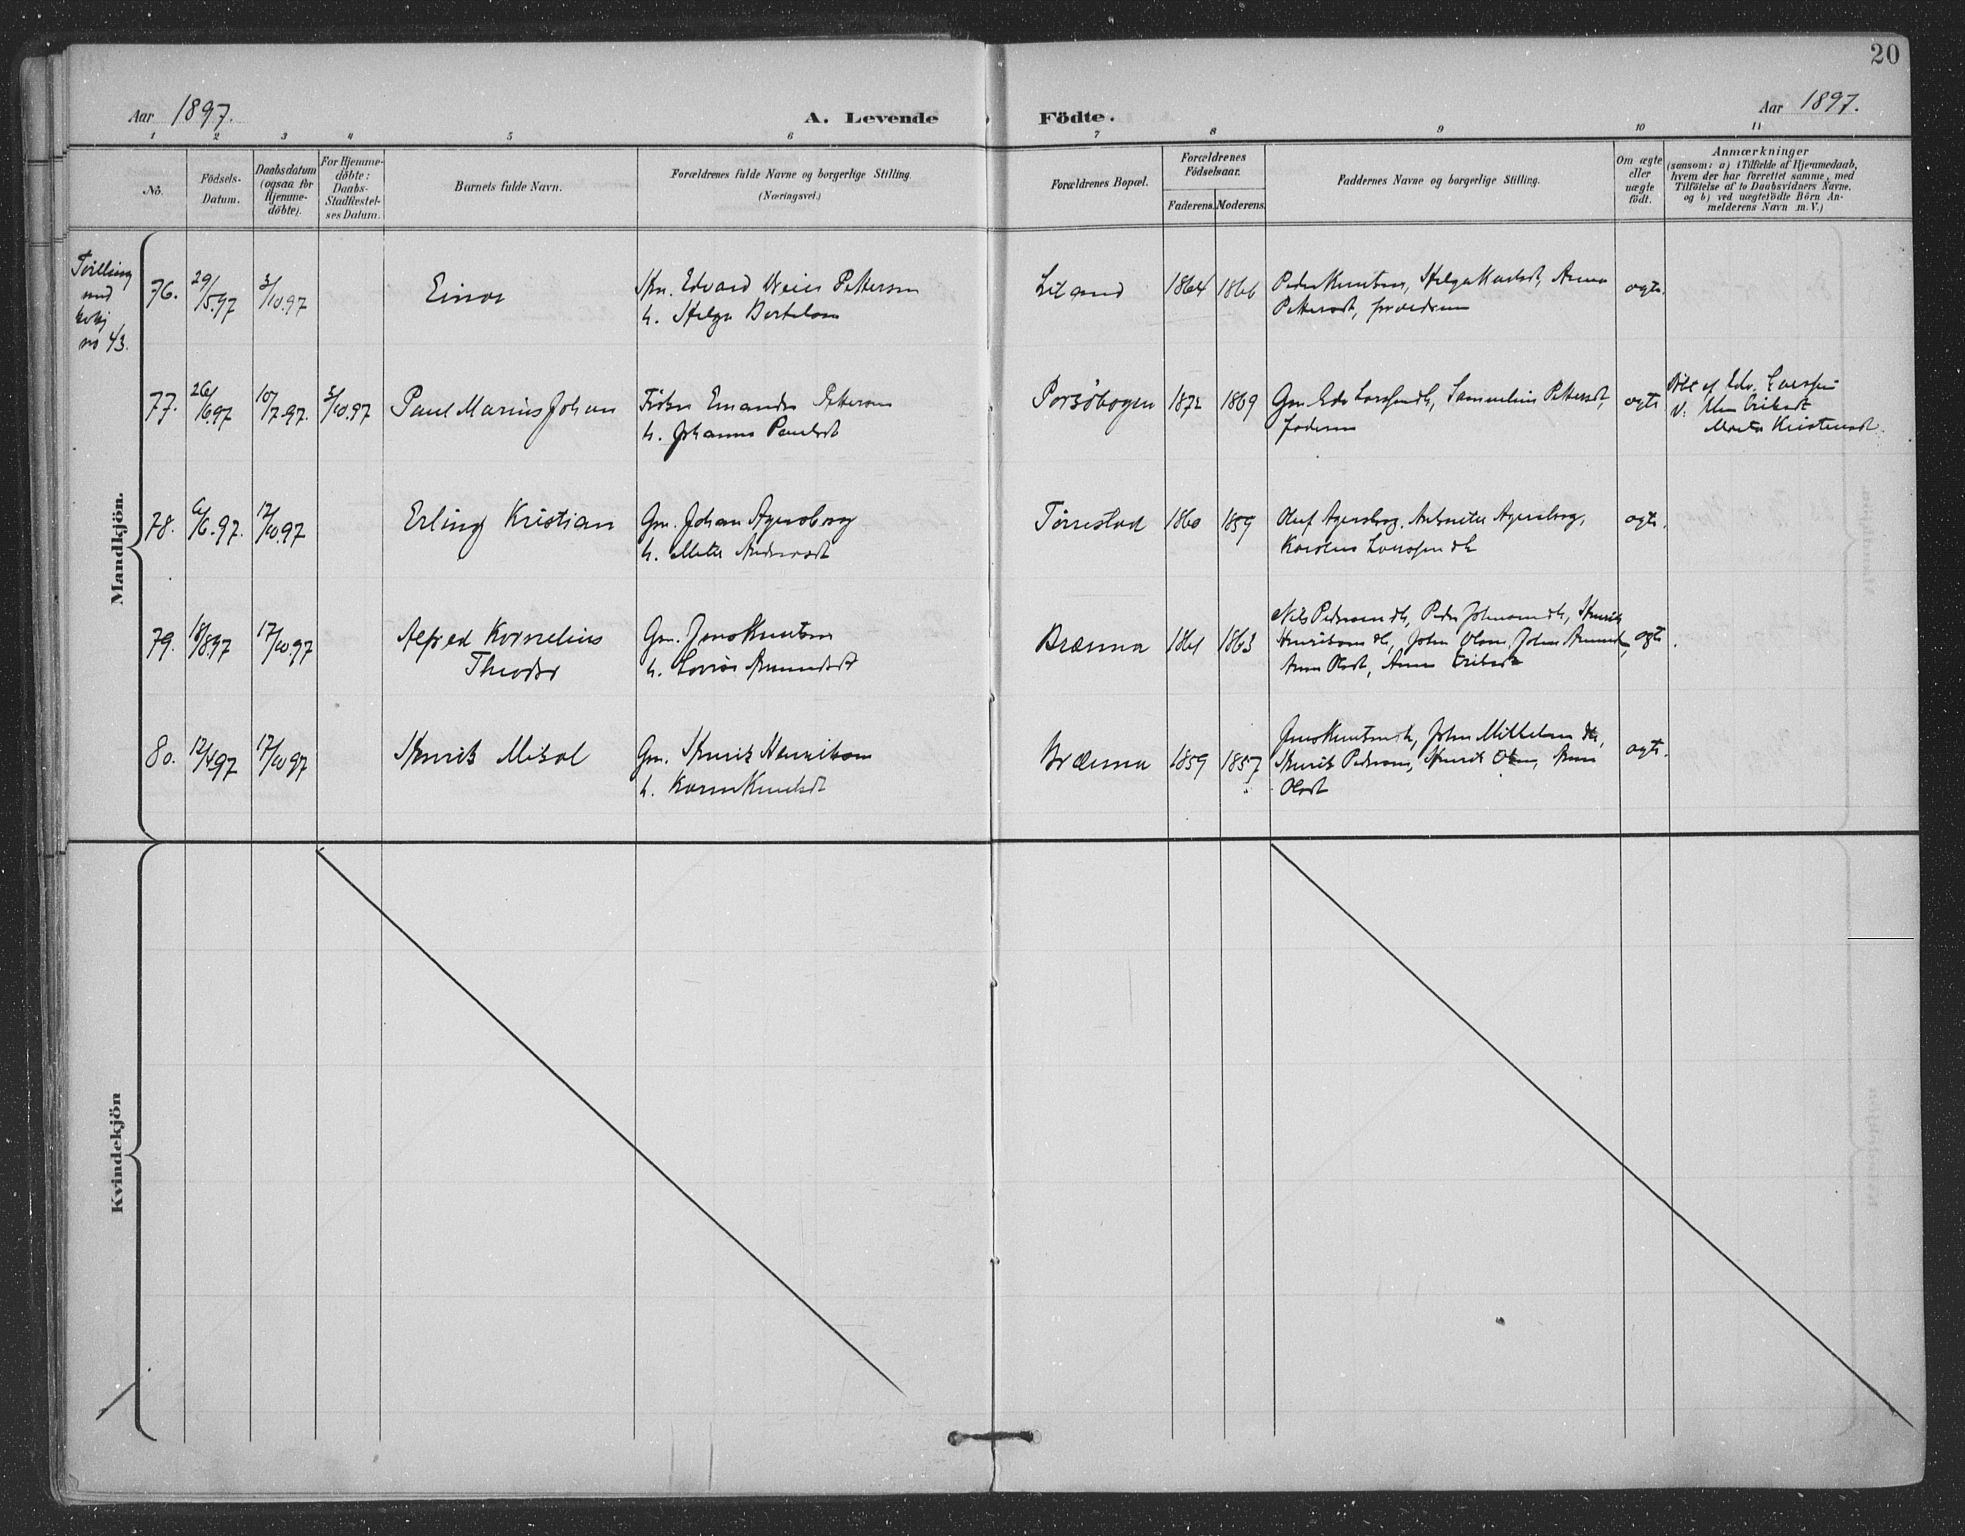 20
Aar 1897.
A. Levende Födte.
Aar 1897.
1 2 3 4 5 6 7 8 9 10 11
No.
Födsels-
Datum.
Daabsdatum
(ogsaa for
Hjemme-
döbte).
For Hjemme-
döbte:
Daabs-
Stadfæstel-
ses Datum.
Barnets fulde Navn.
Forældrenes fulde Navne og borgerlige Stilling.
(Næringsvei.)
Forældrenes Bopæl.
Forældrenes
Födselsaar.
Faderens. Moderens.
Faddernes Navne og borgerlige Stilling.
Om ægte
eller
uægte
födt.
Anmærkninger
(saasom: a) i Tilfælde af Hjemmedaab,
hvem der har forrettet samme, med
Tilföielse af to Daabsvidners Navne,
og b) ved uægtefödte Börn An-
melderens Navn m. V.)
Mandkjön.
Tvilling
med
no 43.
76. 29/5 97 3/10.97 Einar
Edvard Meier Pettersen
h. Helga Bertelsen
Liland 1864 1866
Peder Knutsen, Anna
Pettersdt, forældrene
ægte.
77. 26/6 97 10/7.97. 3/10.97 Paul Marius Johan
Pettersen
h. Johanna Paulsdt
Porsöbogen 1872 1869
Gm. Edv. Larssen
faderen
ægte
Döbt af Edv. Larssen
V:
Kristensdt
78. 6/6.97. 12/10.97 Erling Kristian
Gm. Johan Agersborg
h. Mette Andersdt
Törrestad 1860 1859
Oluf Agersborg, Agersborg,
Larssen
ægte.
79. 18/8 97 17/10.97 Alfred Kornelius
Theodor
Gm. Jens Knutsen
h. Lovise Amundsdt
Brænna 1861 1863
Nils Pedersen Peder Johansen Henrik
Henriksen John Olsen, Johan
Olsdt, Anna Eriksdt
ægte.
80. 12/4 97 17/10 97 Henrik Mikal
Gm. Henrik Henriksen
h. Karen Knudsdt
Brænna 1859 1857
Jens Knutsen John Mikkelsen
Henrik Pedersen, Henrik Olsen,
Olsdt
ægte.
Kvindekjön